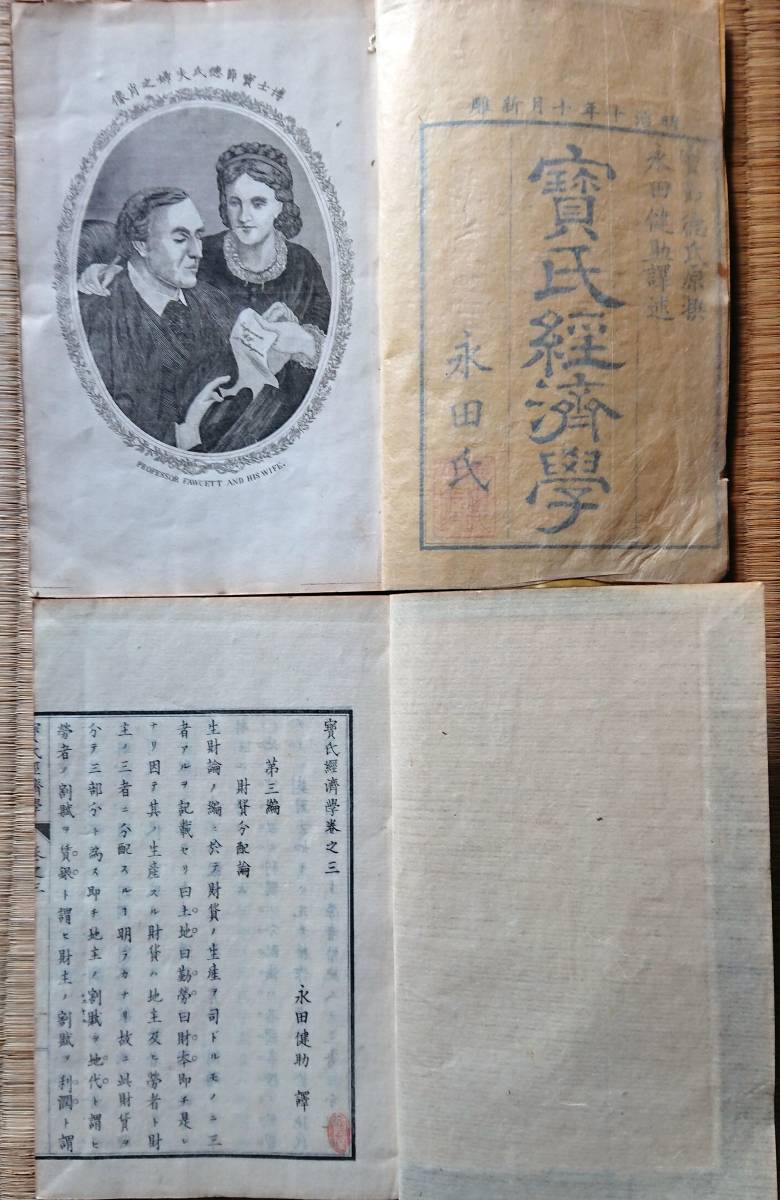 博士寶節德氏夫婦之肖像
PROFESSOR FAWCETT AND HIS WIFE.
明治十年十月新雕
寶節德氏原撰
永田健助譯述
寶氏經濟學
永田氏
寶氏經濟學卷之三
永田健助 譯
第三編
財貨分配論
生財論ノ編ニ於テ財貨ノ生產ヲ司ドルモノニ三
者アルヲ記載セリ曰土地曰勤勞曰財本即チ是レ
ナリ因テ其ノ生產スル財貨ハ地主及ヒ勞者ト財
主ノ三者ニ分配スルヿ明ラカナリ故ニ此財貨ヲ
分テ三部分ト為ス即チ地主ノ割賦ヲ地代ト謂ヒ
勞者ノ割賦ヲ賃銀ト謂ヒ財主ノ割賦ヲ利潤ト謂
寶氏經濟學 卷之三